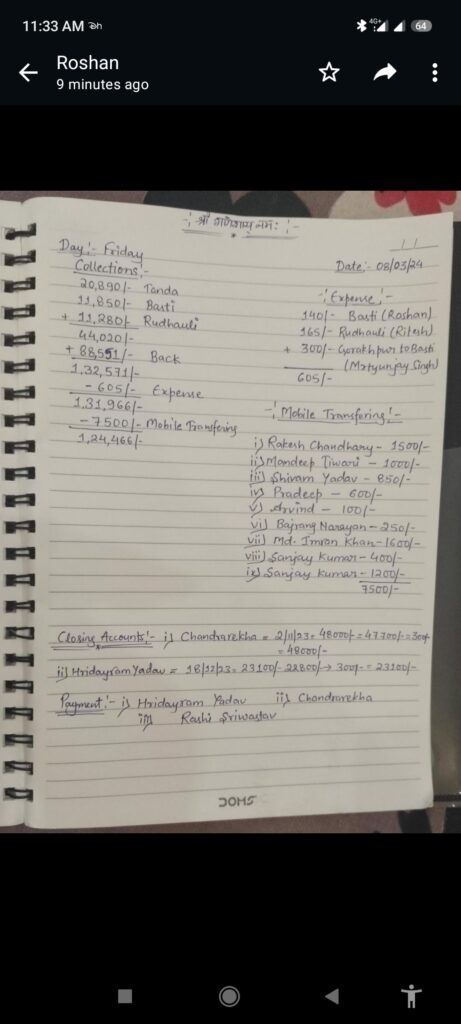 11:33 AM
4G+
64
Roshan
9 minutes ago
-:- श्री गणेशाय नमः -:-
Day:- Friday
Date:- 08/03/24
Collections:-
20,890/- Tanda
11,850/- Basti
+ 11,280/- Rudhauli
44,020/-
+ 88,551/- Back
1,32,571/-
- 605/- Expense
1,31,966/-
- 7500/- Mobile Transfering
1,24,466/-
-:- Expense:-
140/- Basti (Roshan)
165/- Rudhauli (Ritesh)
+ 300/- Gorakhpur to Basti
(Mrtyunjay Singh)
605/-
-:- Mobile Transfering:-
i) Rakesh Chaudhary - 1500/-
ii) Mandeep Tiwari - 1000/-
iii) Shivam Yadav - 850/-
iv) Pradeep - 600/-
v) Arvind - 100/-
vi) Bajrang Narayan - 250/-
vii) Md. Imran Khan - 1600/-
viii) Sanjay Kumar - 400/-
ix) Sanjay Kumar - 1200/-
7500/-
Closing Accounts:- i) Chandrarekha = 2/11/23 = 48000/- = 47700/- = 300/-
= 48000/-
ii) Hridayram Yadav = 18/12/23 = 23100/- 22800/- → 300/- = 23100/-
Payment:- i) Hridayram Yadav ii) Chandrarekha
iii) Rashi Sriwastav
DOMS